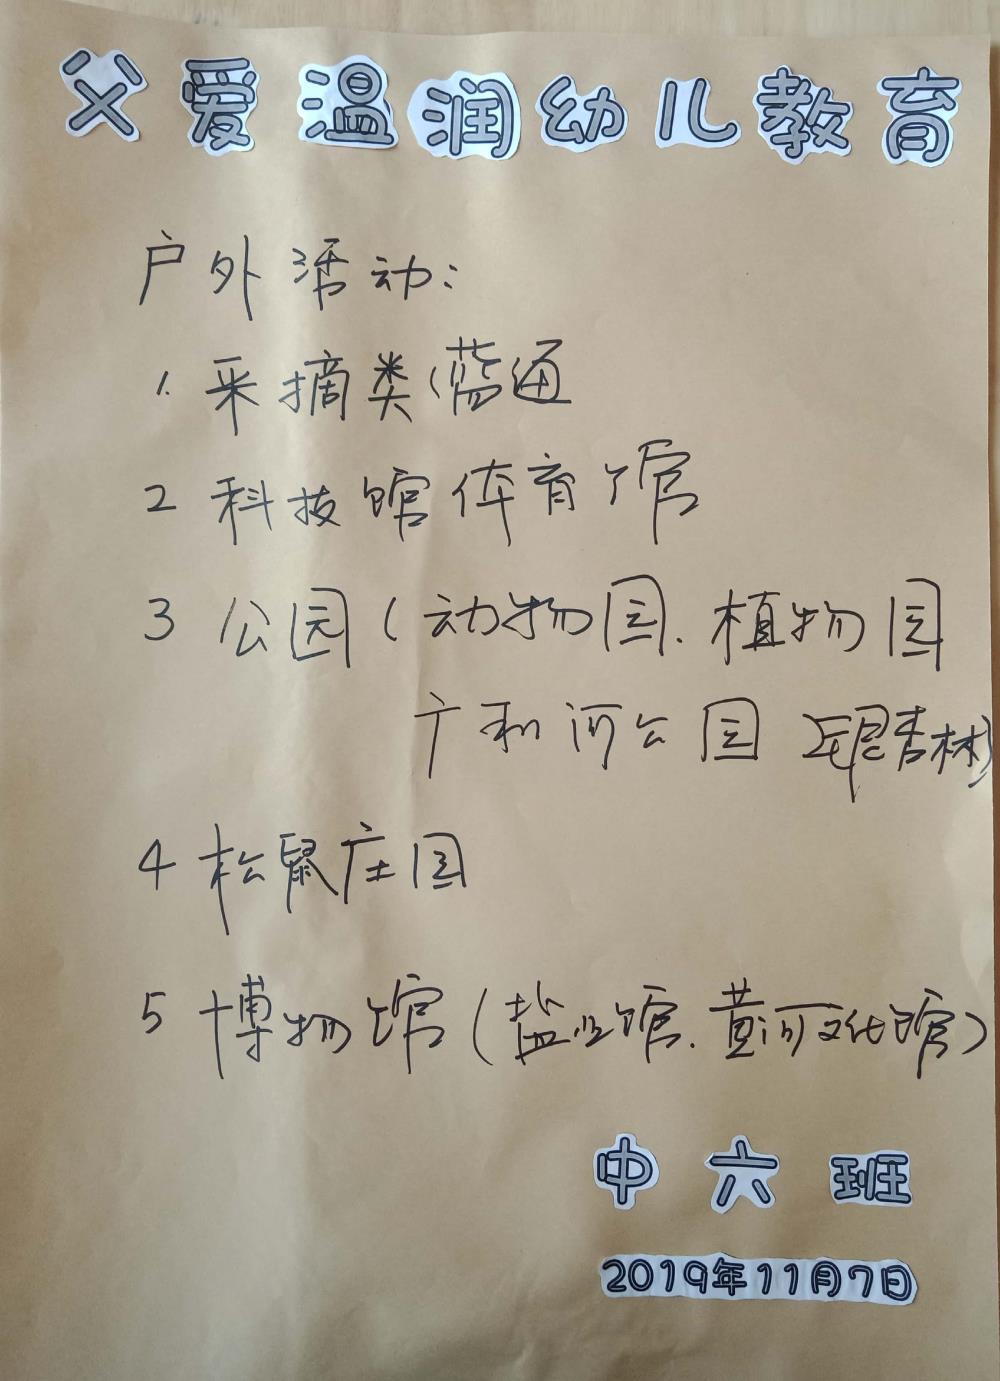 父爱温润幼儿教育
户外活动:
1. 采摘类(蓝通
2 科技馆体育馆
3 公园(动物园、植物园
广利河公园 银杏林)
4 松鼠庄园
5 博物馆(盐业馆、黄河文化馆)
中六班
2019年11月7日